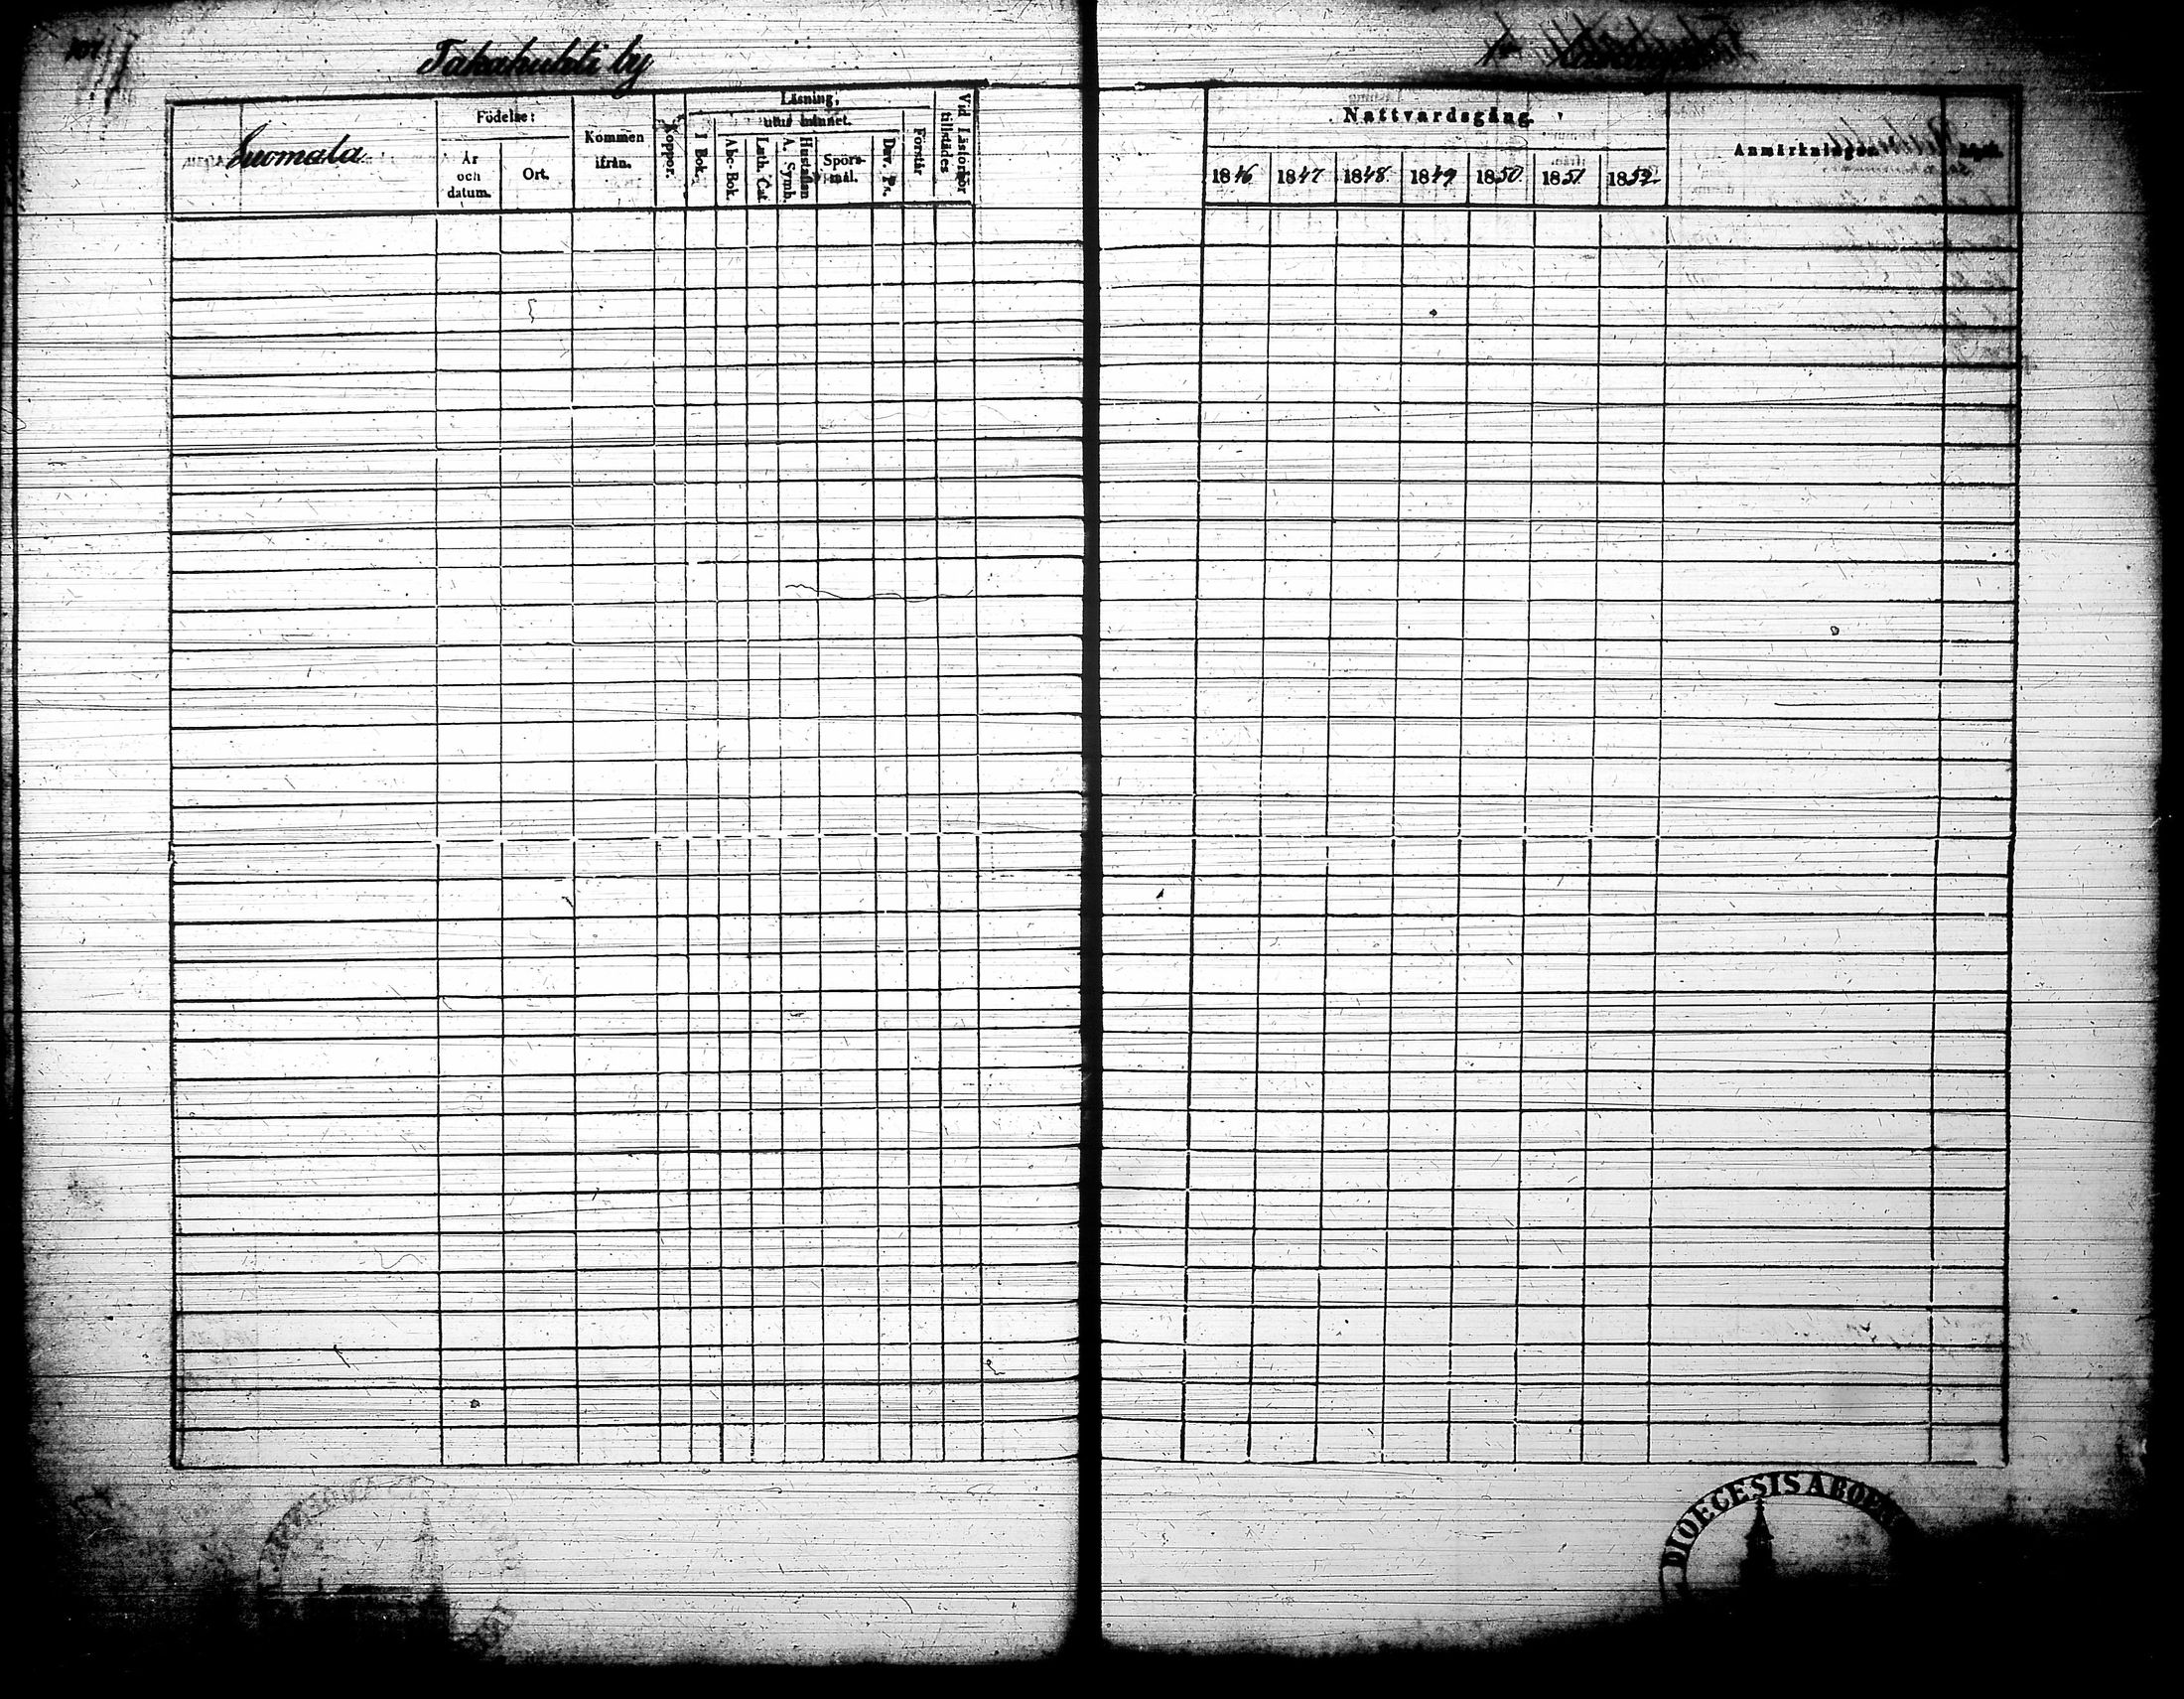 107
Takahuhti by
Suomala
Födelse:
År och datum.
Ort.
Kommen ifrån.
Koppor.
Läsning,
utur minnet.
I Bok.
Abc-Bok.
Luth. Cat.
Hustaflan A. Symb.
Spörs-mål.
Dav. Ps.
Förstår
Vid Läsförhör tillstädes
Nattvardsgång.
1846 1847 1848 1849 1850 1851 1852
Anmärkningar.
DIOECESIS ABOEN